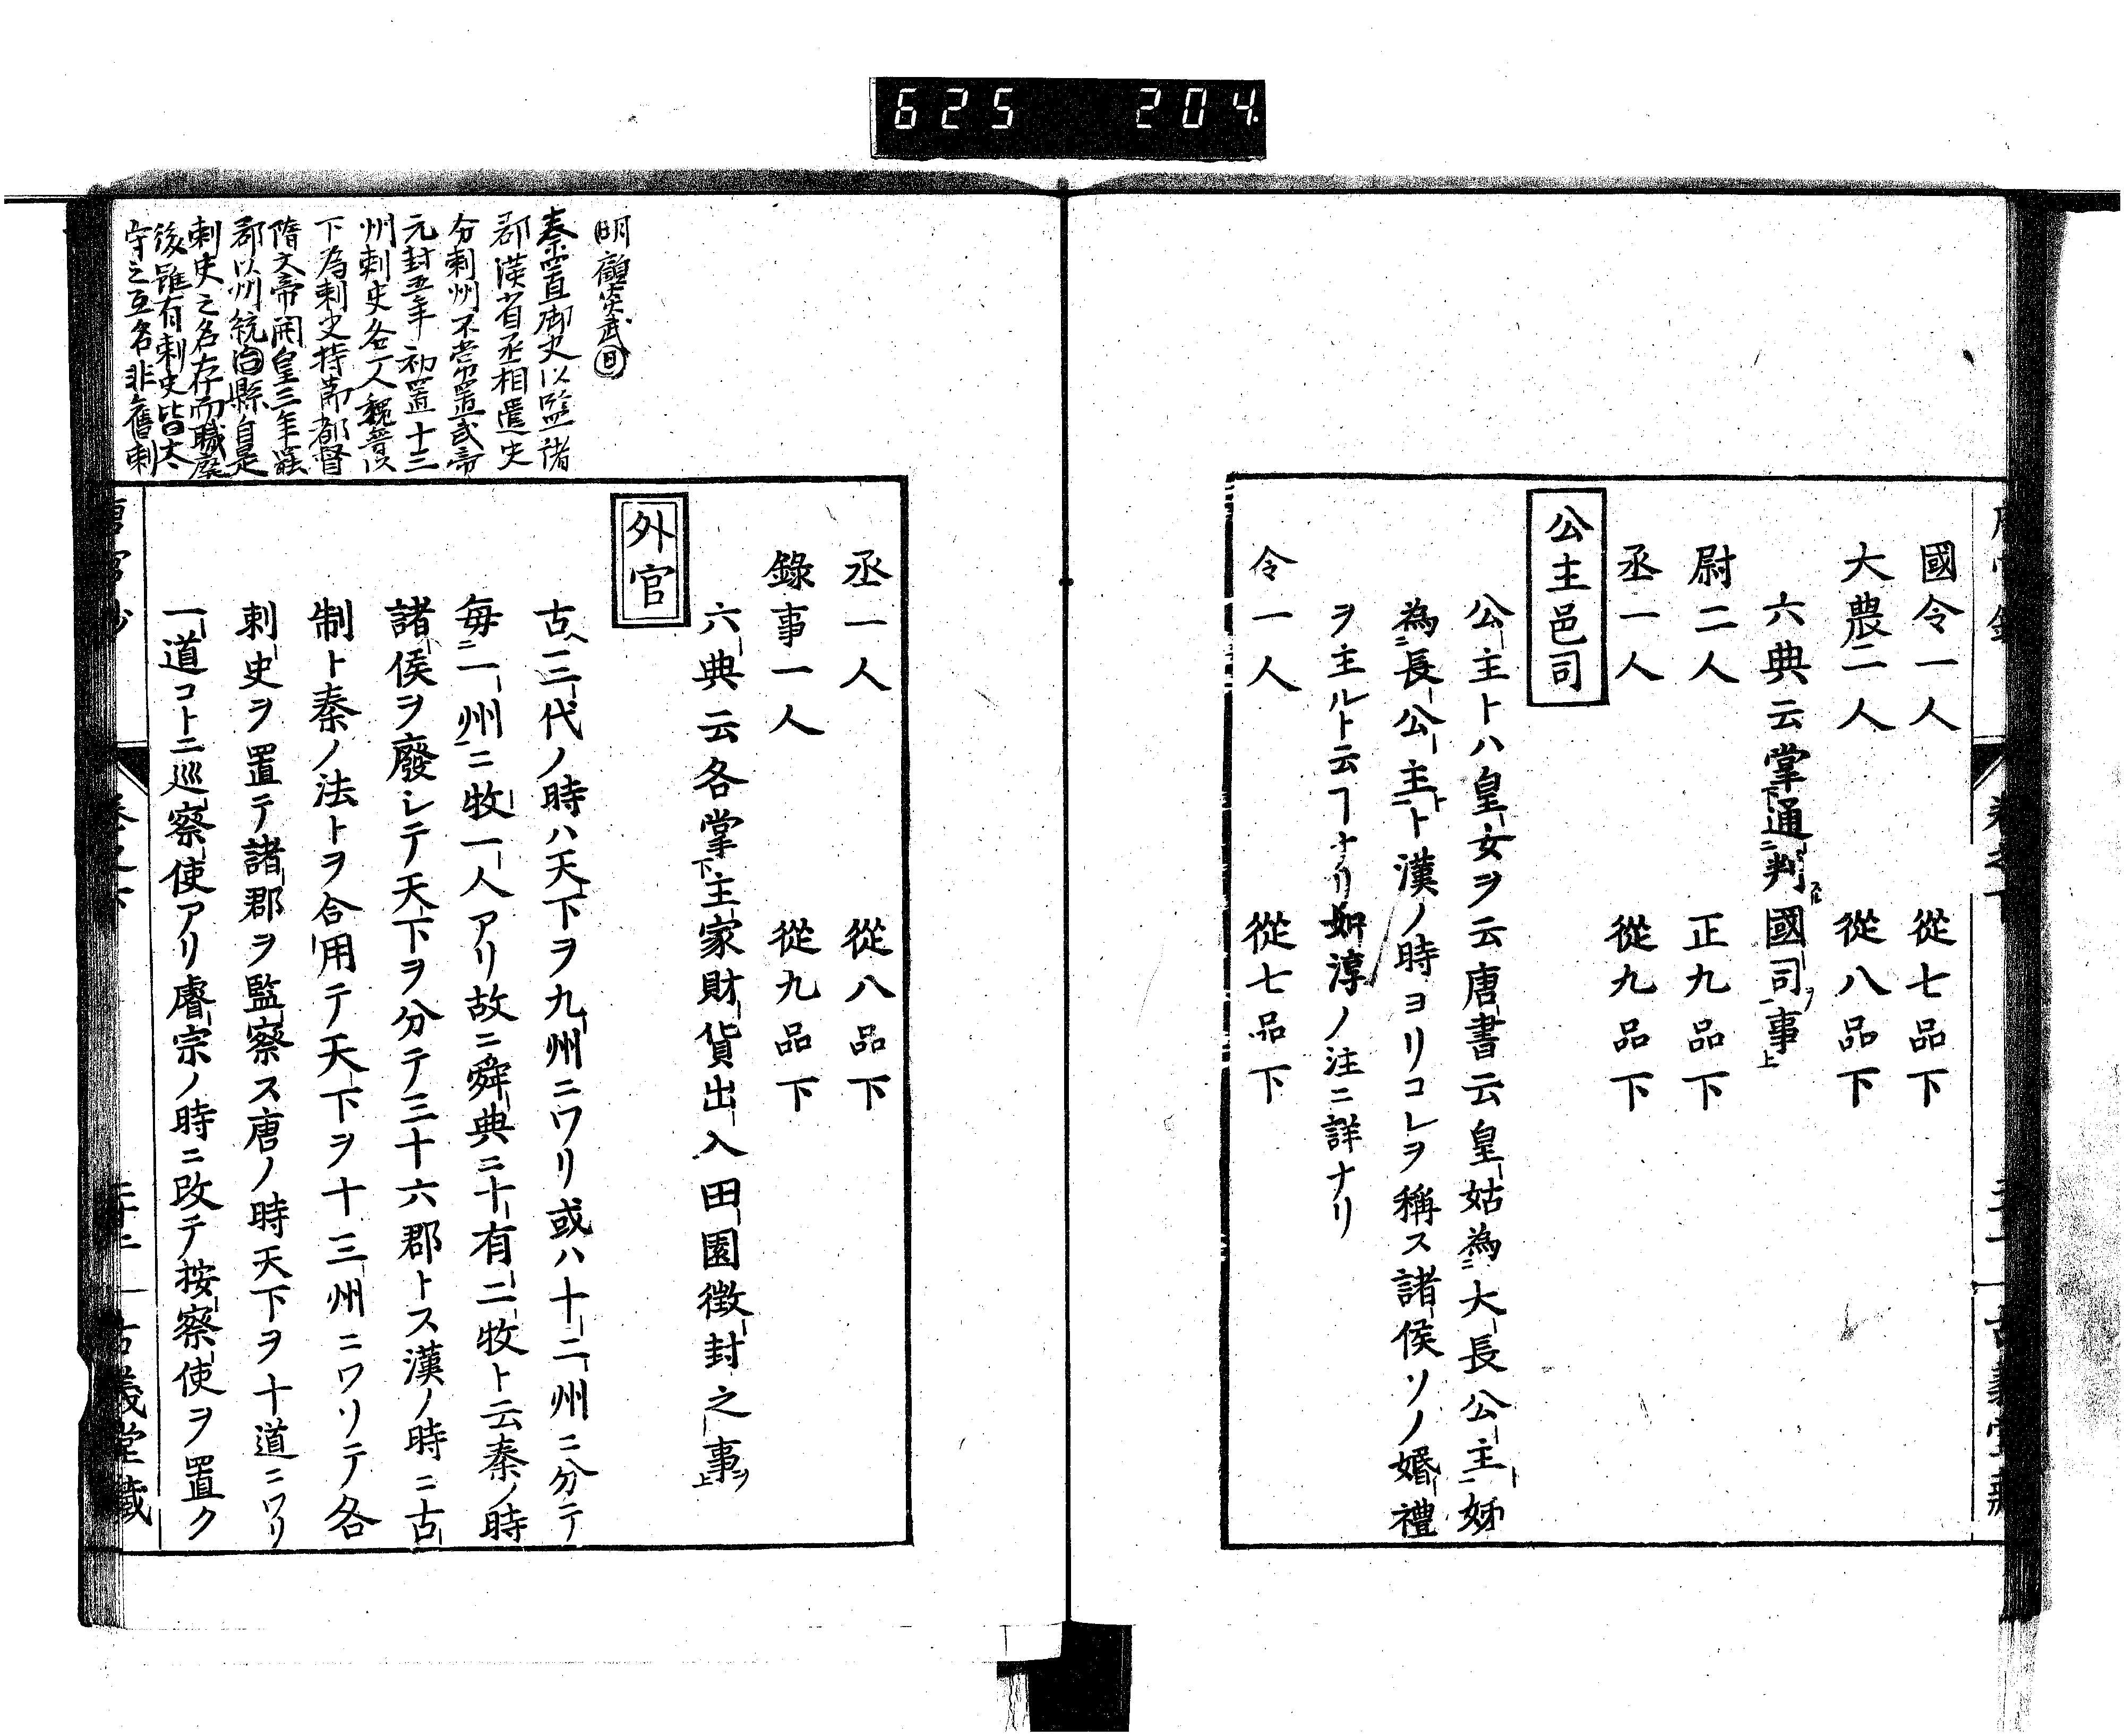 625 204
國令一人 從七品下
大農二人 從八品下
六典云掌通判國司事
尉二人 正九品下
丞一人 從九品下
公主邑司
公主トハ皇女ヲ云唐書云皇姑為大長公主姊
為長公主ト漢ノ時ヨリコレヲ稱ス諸侯ソノ婚禮
ヲ主ルト云ヿナリ如淳ノ注ニ詳ナリ
令一人 從七品下
丞一人 從八品下
錄事一人 從九品下
六典云各掌主家財貨出入田園徵封之事
外官
古ヘ三代ノ時ハ天下ヲ九州ニワリ或ハ十二州ニ分テ
每ニ一州ニ牧一人アリ故ニ舜典ニ十有二牧ト云秦ノ時
諸侯ヲ廢レテ天下ヲ分テ三十六郡トス漢ノ時ニ古
制ト秦ノ法トヲ合用テ天下ヲ十三州ニワリテ各
刺史ヲ置テ諸郡ヲ監察ス唐ノ時天下ヲ十道ニワリ
一道コトニ巡察使アリ睿宗ノ時ニ改テ按察使ヲ置ク
明顧炎武曰
秦置御史以監諸
郡漢省丞相遣史
分刺州不常置武帝
元封五年初置十三
州刺史各一人魏晉以
下為刺史持節都督
隋文帝開皇三年罷
郡以州統縣自是
刺史之名存而職廢
後雖有刺史皆太
守之互名非舊刺
卷之下
古義堂藏